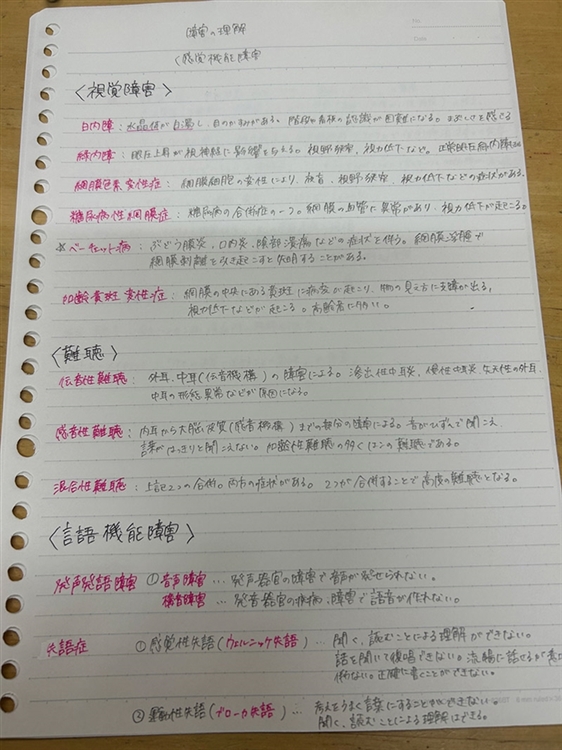 障害の理解
〈感覚機能障害
〈視覚障害〉
白内障: 水晶体が白濁し、目のかすみがある。階段や看板の認識が困難になる。まぶしさを感じる
緑内障: 眼圧上昇が視神経に影響を与える。視野狭窄、視力低下など。正常眼圧緑内障
網膜色素変性症: 網膜細胞の変性により、夜盲、視野狭窄、視力低下などの症状がある。
糖尿病性網膜症: 糖尿病の合併症の一つ。網膜の血管に異常があり、視力低下が起こる。
※ベーチェット病: ぶどう膜炎、口内炎、陰部潰瘍などの症状を伴う。網膜
網膜剥離を引き起こすと失明することがある。
加齢黄斑変性症: 網膜の中央にある黄斑に病変が起こり、物の見え方に支障が出る。
視力低下などが起こる。高齢者に多い。
〈難聴〉
伝音性難聴: 外耳、中耳(伝音機構)の障害による。滲出性中耳炎、慢性中耳炎、先天性の外耳、
中耳の形態異常などが原因になる。
感音性難聴: 内耳から大脳皮質(感音機構)までの部分の障害による。音がひずんで聞こえ、
言葉がはっきりと聞こえない。加齢性難聴の多くはこの難聴である。
混合性難聴: 上記2つの合併。両方の症状がある。2つが合併することで高度の難聴となる。
〈言語機能障害〉
発声発語障害 ①音声障害 … 発声器官の障害で音声が発せられない。
構音障害 … 発音器官の疾病、障害で語音が作れない。
失語症 ①感覚性失語(ウェルニッケ失語) … 聞く、読むことによる理解ができない。
話を聞いて復唱できない。流暢に話せるが意
伴わない。正確に書くことができない。
②運動性失語(ブローカ失語) … 考えをうまく言葉にすることができない。
聞く、読むことによる理解はできる。